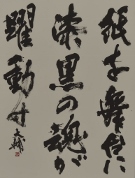 紙を舞台に
漆黒の魂が
躍動す